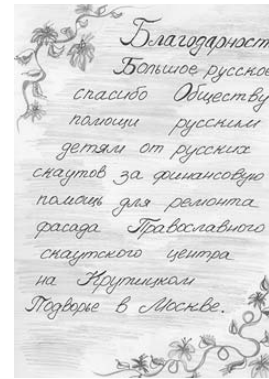 Благодарност
Большое русское
спасибо Обществу
помощи русским
детям от русских
скаутов за финансовую
помощь для ремонта
фасада Православного
скаутского центра
на Крутицком
Подворье в Москве.